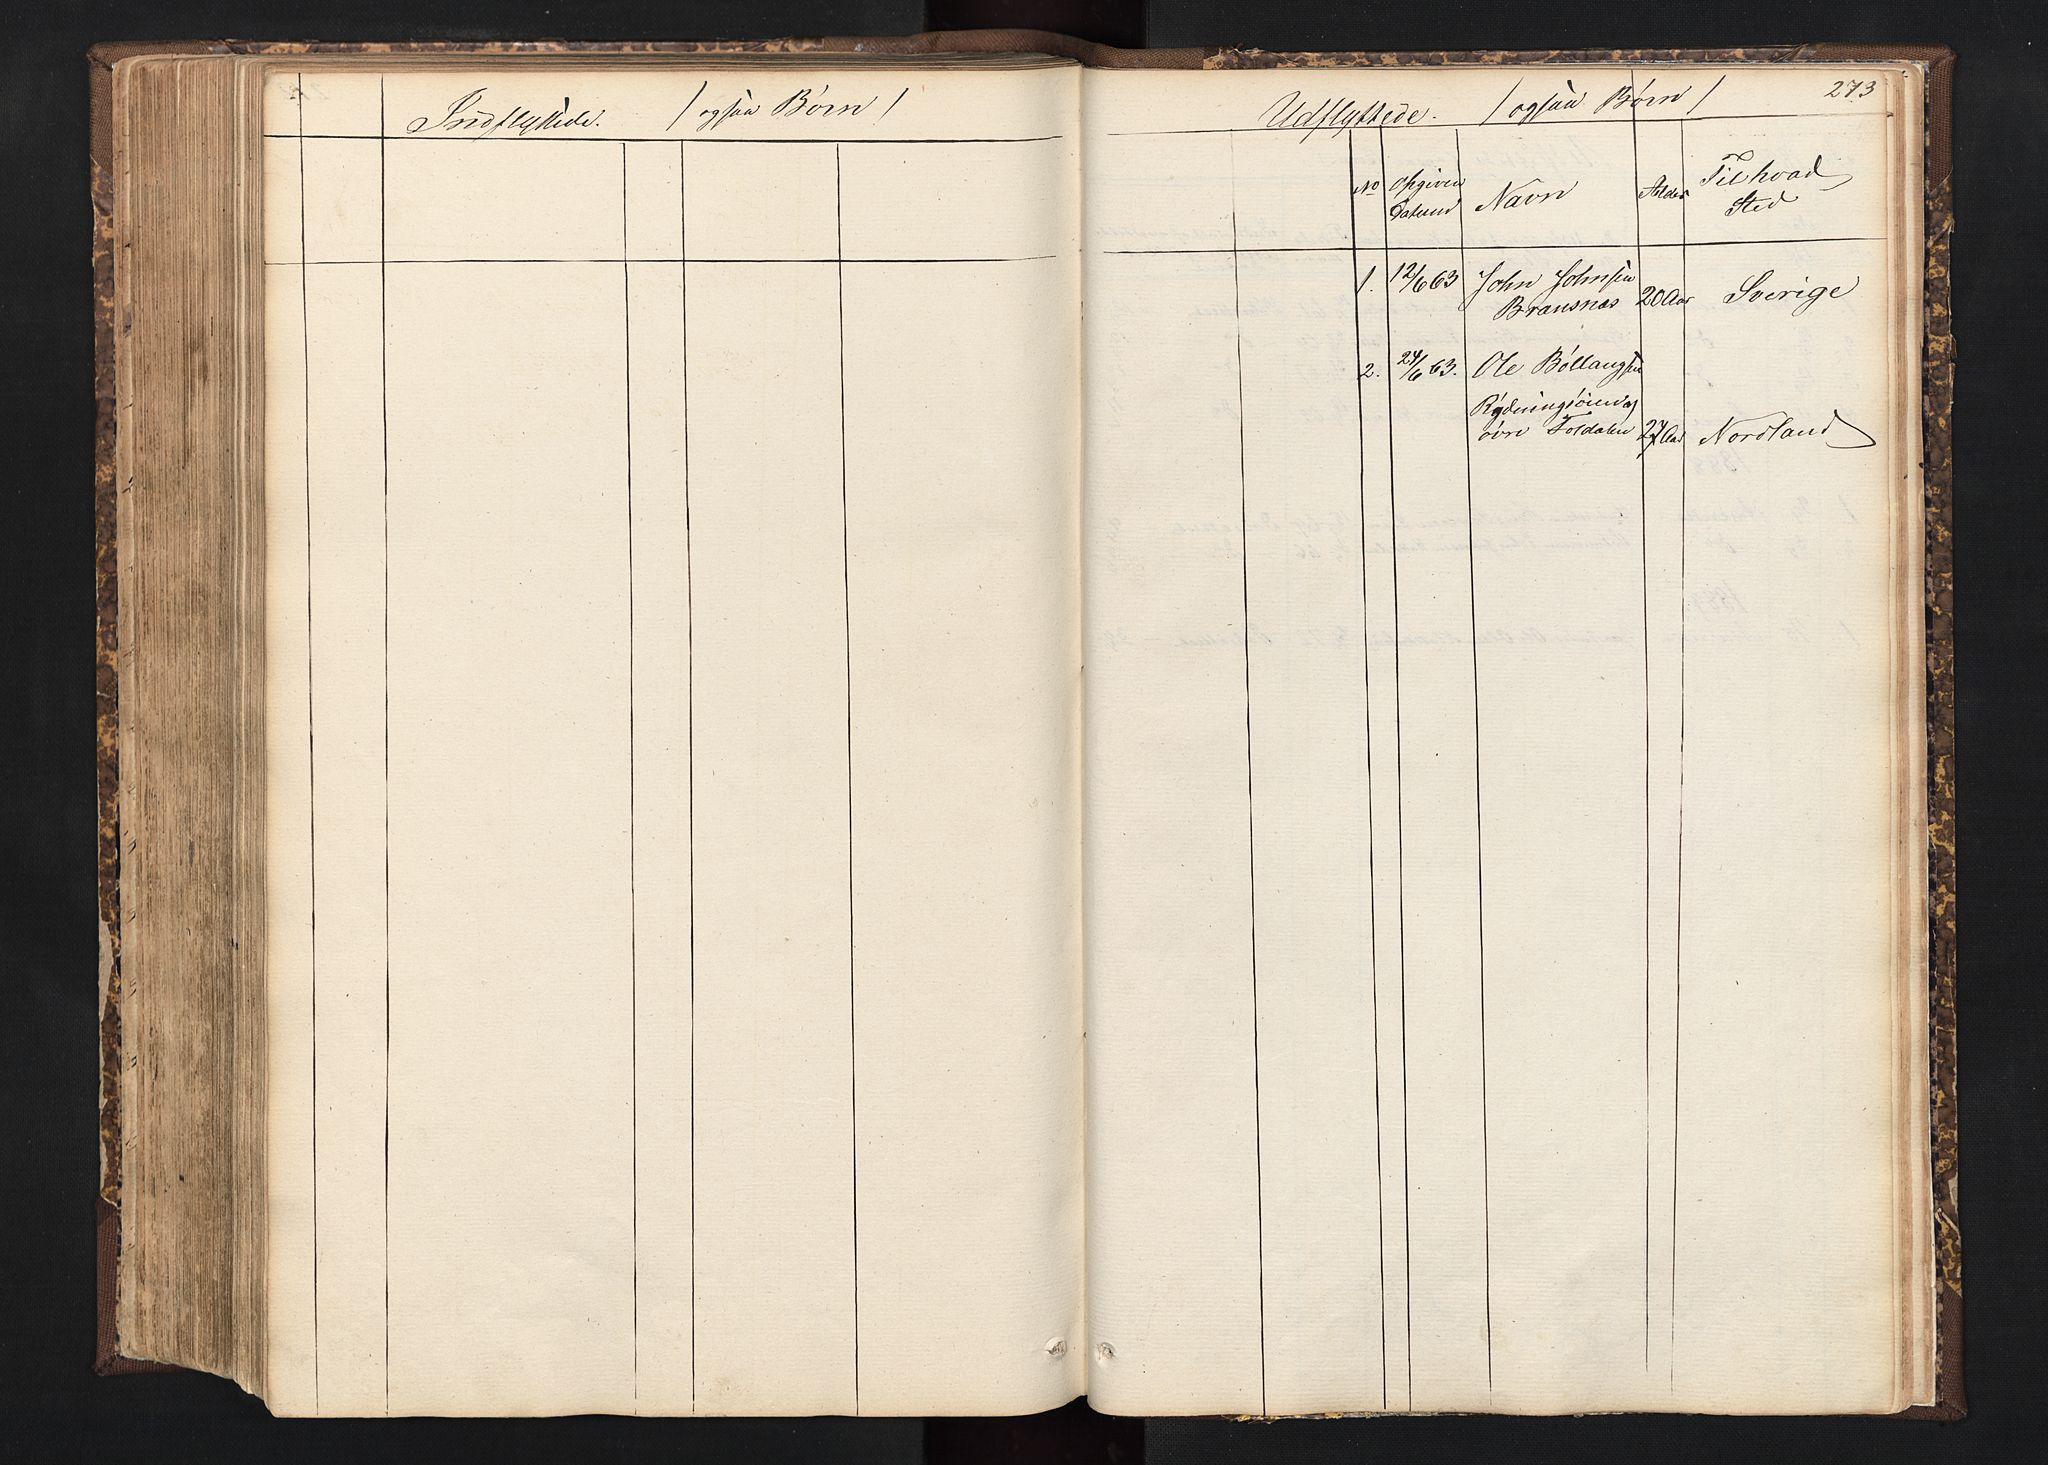 Indflyttede. / ogsaa Børn /
Udflyttede. / ogsaa Børn /
273
No
Opgiven
Datum
Navn
Alder
Til hvad
Sted
1. 12/6 63 John Johnsen
Bransnæs 20 Aar Sverige
2. 24/6 63. Ole
øvre Foldalen 27 Aar Nordland